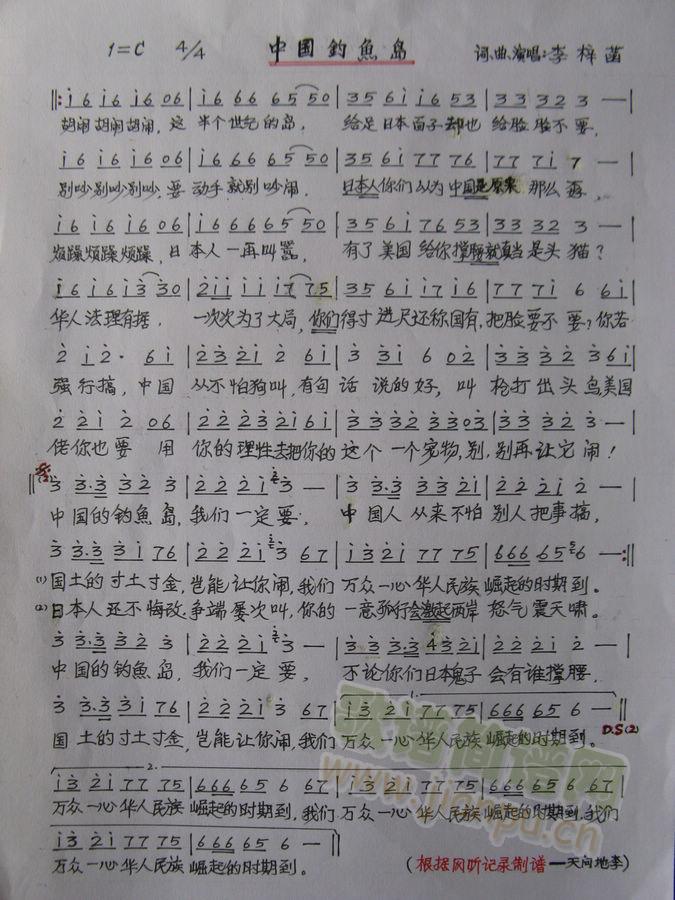 1=C 4/4 中国釣魚岛 词、曲、演唱:李梓菡
‖: i6 i6 i6 06 | i6 66 65 50 | 35 6i i6 53 | 33 32 3 — |
胡闹胡闹胡闹, 这 半个世纪的岛, 给足日本面子却也 给脸脸不要,
i6 i6 i6 06 | i6 66 65 50 | 35 6i 77 76 | 77 7i 7 — |
别吵别吵别吵, 要 动手就别吵闹, 日本人你们以为中国是原来 那么孬,
i6 i6 i6 06 | i6 666 65 50 | 35 6i 76 53 | 33 32 3 — |
烦躁烦躁烦躁, 日本人一再叫嚣, 有了美国给你撑腰就真当是头猫?
i6 i6 i3 30 | 2ii ii i7 75 | 35 6i i7 i6 | 77 7i 6 6i |
华人法理有据, 一次次为了大局, 你们得寸进尺还称国有, 把脸要不要? 你若
2 i2· 6i | 23 2i 2 6i | 3 3i 6 02 | 33 32 36i |
强行搞, 中国 从不怕狗叫, 有句话说的好, 叫 枪打出头鸟, 美国
2 2i 2 06 | 22 23 2i 6i | 33 32 3303 | 33 32 3 — |
佬你也要 用 你的理性去把你的这个一个宠物, 别, 别再让它闹!
‖ 3 3·3 32 3 | 2 2 2i 3 — | 3 3·3 33 2i | 22 2i 2 — |
中国的钓魚岛, 我们一定要, 中国人从来不怕别人把事搞,
3 3·3 3i 76 | 22 2i 3 67 | i3 2i 77 75 | 666 65 6 — :‖
(1) 国土的寸土寸金, 岂能让你闹, 我们 万众一心华人民族 崛起的时期到。
(2) 日本人还不悔改, 争端屡次叫, 你的 一意孤行会激起两岸 怒气震天啸。
3 3·3 32 3 | 2 2 2i 3 — | 33 3·3 43 2i | 222i 2 — |
中国的钓魚岛, 我们一定要, 不论你们日本鬼子会有谁撑腰.
3 3·3 3i 76 | 2 2 2i 3 67 | 1. i3 2i 77 75 | 666 65 6 — ‖
国土的寸土寸金, 岂能让你闹, 我们 万众一心华人民族 崛起的时期到。 D.S(2)
2. i3 2i 77 75 | 666 65 6 67 | i3 2i 77 75 | 666 65 6 67 |
万众一心华人民族 崛起的时期到, 我们 万众一心华人民族 崛起的时期到, 我们
i3 2i 77 75 | 666 65 6 — ‖
万众一心华人民族 崛起的时期到。 (根据网听记录制谱——天问地李)